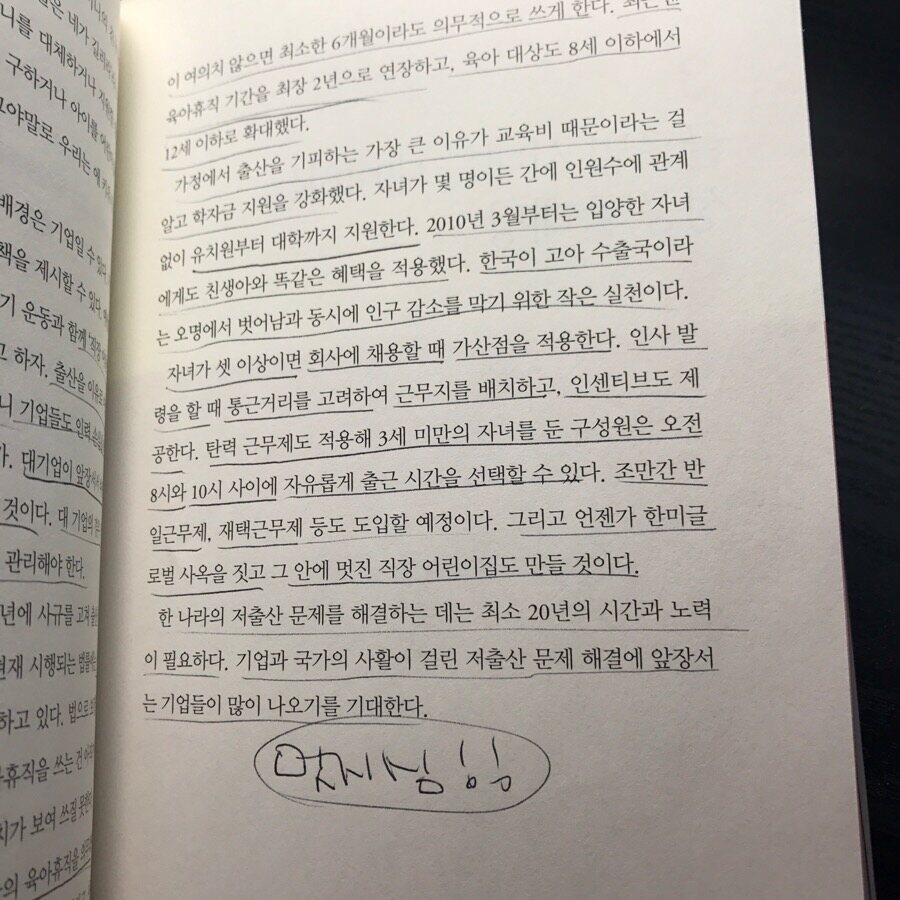 니를 대체하거나
구하거나 아이를
그야말로 우리는 애 키
배경은 기업일 수 있다.
책을 제시할 수 있다.
기 운동과 함께 '직장
고 하자. 출산을 이유로
니 기업들도 인력
가. 대기업이 앞장서
것이다. 대 기업의
관리해야 한다.
년에 사규를 고쳐
현재 시행되는
하고 있다. 법으로
육아휴직을 쓰는 건
치가 보여 쓰질 못
의 육아휴직을
이 여의치 않으면 최소한 6개월이라도 의무적으로 쓰게 한다. 최근엔
육아휴직 기간을 최장 2년으로 연장하고, 육아 대상도 8세 이하에서
12세 이하로 확대했다.
가정에서 출산을 기피하는 가장 큰 이유가 교육비 때문이라는 걸
알고 학자금 지원을 강화했다. 자녀가 몇 명이든 간에 인원수에 관계
없이 유치원부터 대학까지 지원한다. 2010년 3월부터는 입양한 자녀
에게도 친생아와 똑같은 혜택을 적용했다. 한국이 고아 수출국이라
는 오명에서 벗어남과 동시에 인구 감소를 막기 위한 작은 실천이다.
자녀가 셋 이상이면 회사에 채용할 때 가산점을 적용한다. 인사 발
령을 할 때 통근거리를 고려하여 근무지를 배치하고, 인센티브도 제
공한다. 탄력 근무제도 적용해 3세 미만의 자녀를 둔 구성원은 오전
8시와 10시 사이에 자유롭게 출근 시간을 선택할 수 있다. 조만간 반
일근무제, 재택근무제 등도 도입할 예정이다. 그리고 언젠가 한미글
로벌 사옥을 짓고 그 안에 멋진 직장 어린이집도 만들 것이다.
한 나라의 저출산 문제를 해결하는 데는 최소 20년의 시간과 노력
이 필요하다. 기업과 국가의 사활이 걸린 저출산 문제 해결에 앞장서
는 기업들이 많이 나오기를 기대한다.
멋지심